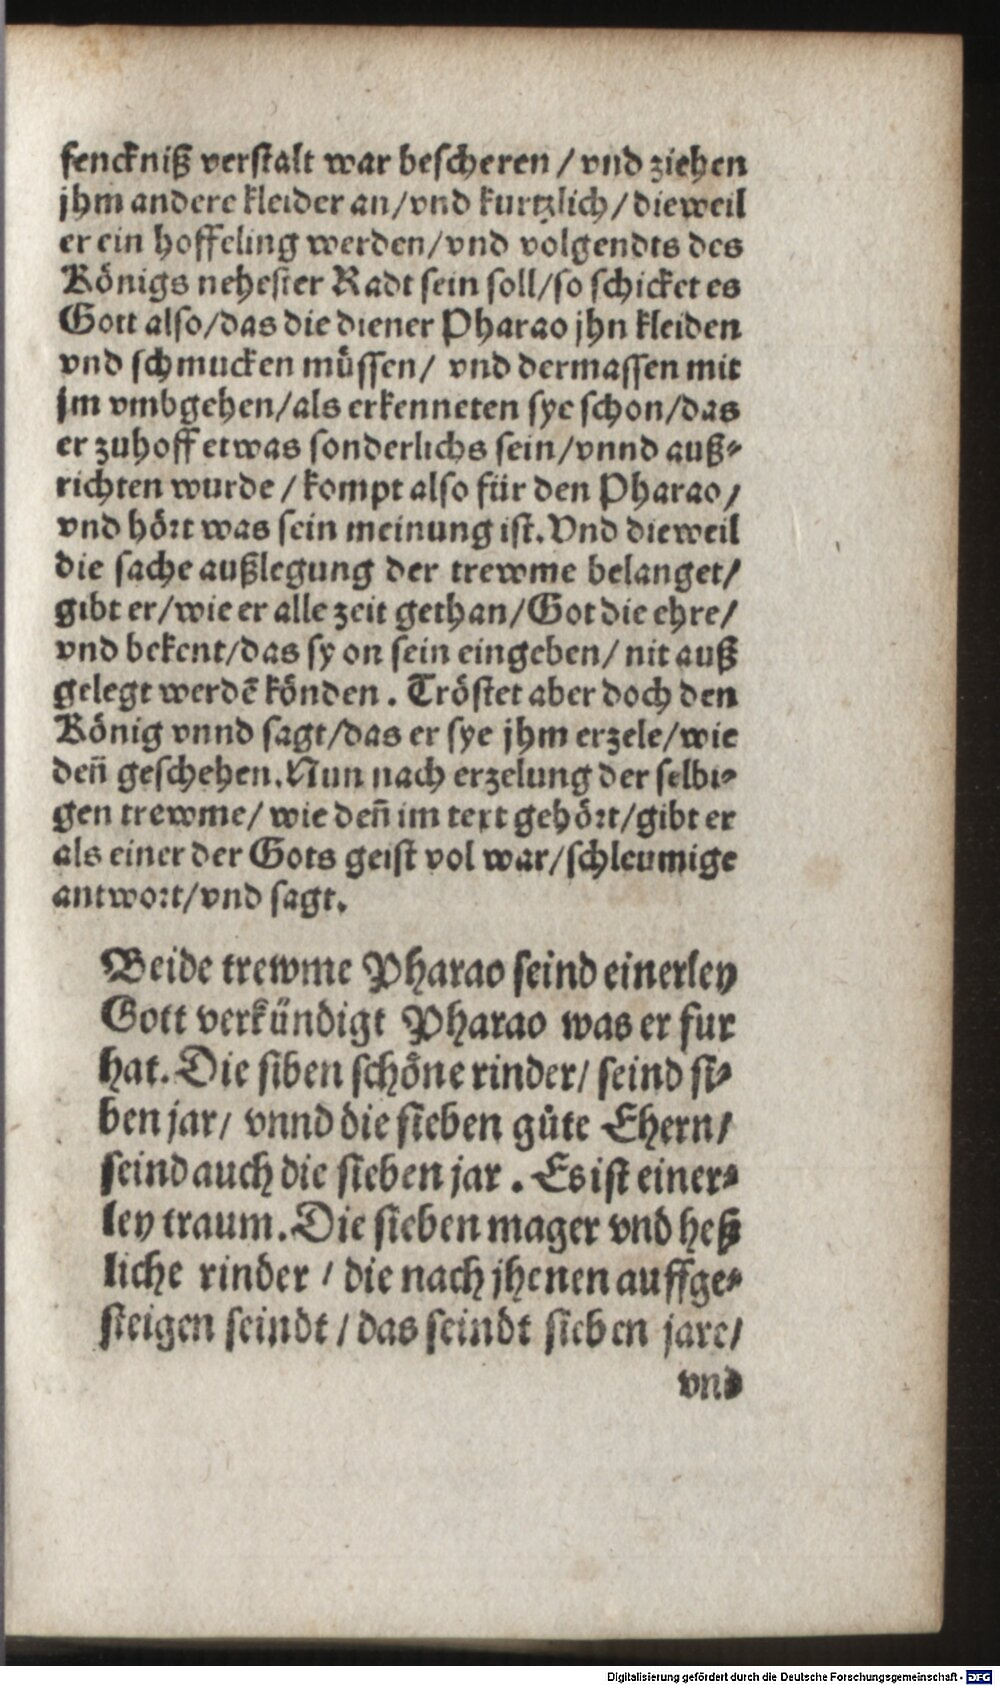 fenckniß verstalt war bescheren / vnd ziehen
jhm andere kleider an/vnd kurtzlich/dieweil
er ein hoffeling werden/vnd volgendts des
Königs nehester Radt sein soll/so schicket es
Gott also/das die diener Pharao jhn kleiden
vnd schmucken müssen/ vnd dermassen mit
jm vmbgehen/als erkenneten sye schon/das
er zuhoff etwas sonderlichs sein/vnnd auß-
richten wurde / kompt also für den Pharao/
vnd hört was sein meinung ist. Vnd dieweil
die sache außlegung der trewme belanget/
gibt er/wie er alle zeit gethan/Got die ehre/
vnd bekent/das sy on sein eingeben/ nit auß
gelegt werdē könden . Tröstet aber doch den
König vnnd sagt/das er sye jhm erzele/wie
deñ geschehen. Nun nach erzelung der selbi-
gen trewme/ wie deñ im text gehört/gibt er
als einer der Gots geist vol war/schleumige
antwort/vnd sagt.
Beide trewme Pharao seind einerley
Gott verkündigt Pharao was er fur
hat. Die siben schöne rinder/ seind si-
ben jar/ vnnd die sieben gůte Ehern/
seind auch die sieben jar . Es ist einer-
ley traum. Die sieben mager vnd heß
liche rinder / die nach jhenen auffge-
steigen seindt / das seindt sieben jare/
vnd
Digitalisierung gefördert durch die Deutsche Forschungsgemeinschaft - DFG